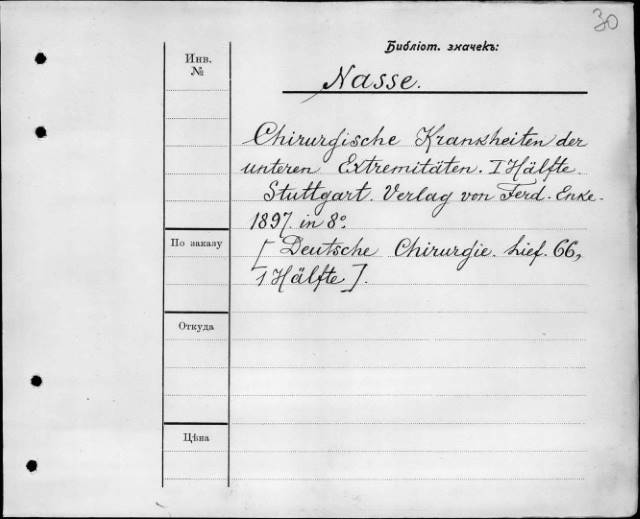 30
Библіот. значекъ:
Инв.
№
Nasse.
Chirurgische Krankheiten der
unteren Extremitäten. I Hälfte.
Stuttgart. Verlag von Ferd. Enke.
1897. in 8º.
По заказу
[Deutsche Chirurgie. Lief. 66,
1 Hälfte].
Откуда
Цѣна